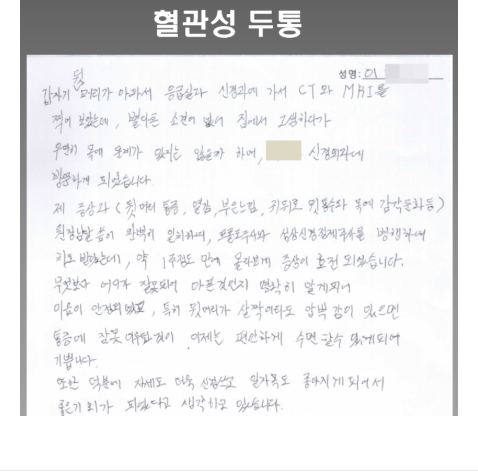 혈관성 두통
성명: 이
뒷
갑자기 머리가 아파서 응급실과 신경과에 가서 CT와 MRI를
찍어 보았는데, 별다른 소견이 없어 집에서 고생하다가
우연히 목에 문제가 있지는 않은가 하여, 신경외과에
방문하게 되었습니다.
제 증상과 (뒷머리 통증, 열감, 부은느낌, 귀뒤로 뒷통수와 목에 감각둔화등)
원장님말씀이 완벽히 일치하여, 프롤로주사와 성상신경절제주사를 병행하여
치료 받았는데, 약 1주정도 만에 놀라보게 증상이 호전 되었습니다.
무엇보다 어디가 잘못되어 아픈것인지 명확히 알게되어
마음이 안정되었고, 특히 뒷머리가 살짝이라도 압박감이 있으면
통증에 잠못 이루던것이 이제는 편안하게 수면 할수 있게되어
기쁩니다.
또한 덕분에 자세도 더욱 신경쓰고 일자목도 좋아지게 되어서
좋은 기회가 되었다고 생각하고 있습니다.